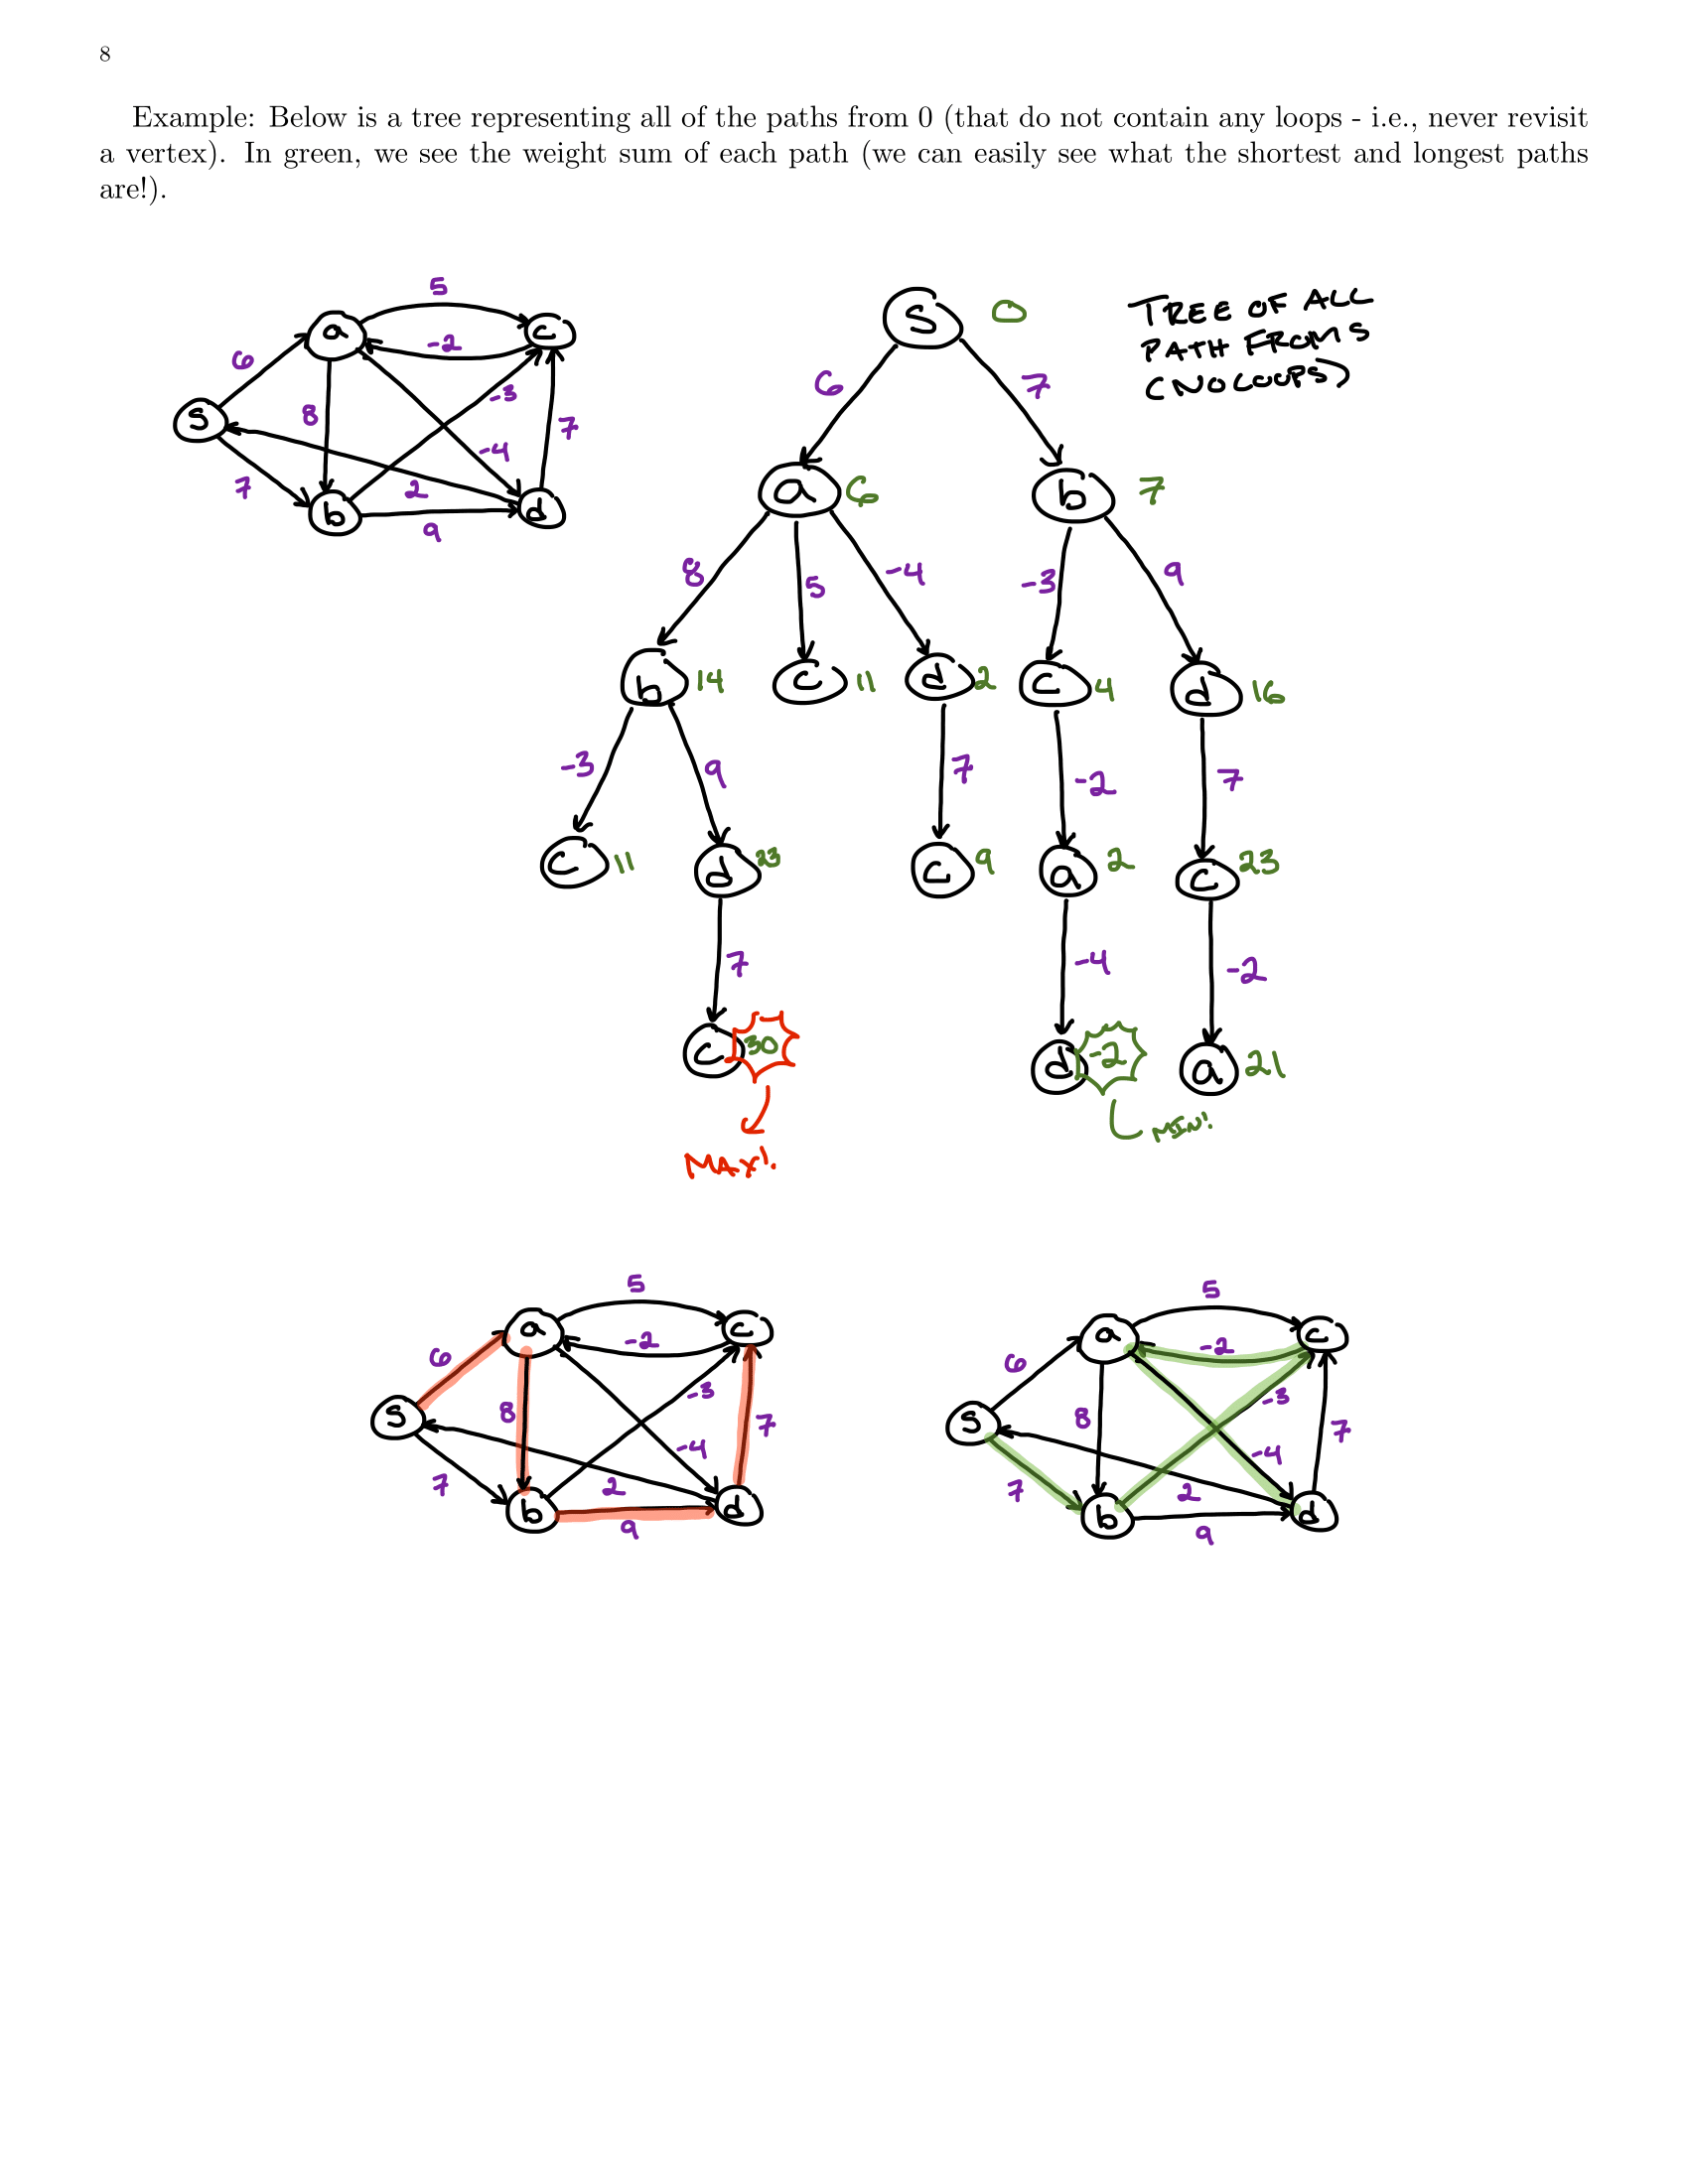 8
Example: Below is a tree representing all of the paths from 0 (that do not contain any loops - i.e., never revisit
a vertex). In green, we see the weight sum of each path (we can easily see what the shortest and longest paths
are!).
5
a
c
-2
6
-3
8
S
7
-4
7
2
b
d
9
S
0
TREE OF ALL
PATH FROM S
(NO LOOPS)
6
7
a
6
b
7
8
5
-4
-3
9
b
14
c
11
d
2
c
4
d
16
-3
9
7
-2
7
c
11
d
23
c
9
a
2
c
23
7
-4
-2
c
30
d
-2
a
21
MAX!
MIN!
5
a
c
-2
6
-3
8
S
7
-4
7
2
b
d
9
5
a
c
-2
6
-3
8
S
7
-4
7
2
b
d
9